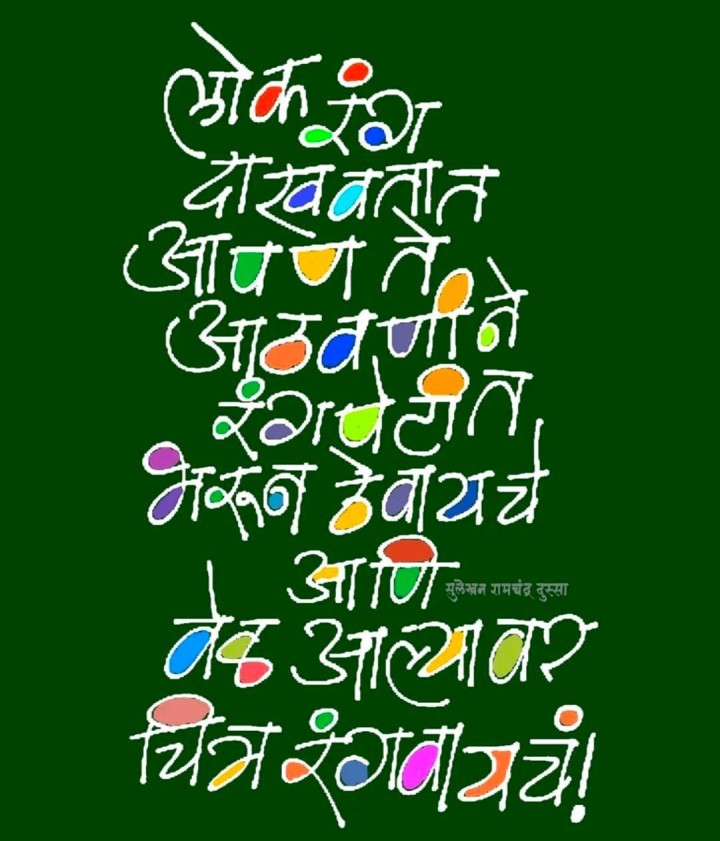 लोक रंग
दाखवतात
आपण ते
आठवणीने
रंगपेटीत
भरून ठेवायचे
आणि
सुलेखन रामचंद्र दुस्सा
वेड आल्यावर
चित्र रंगवायचं!